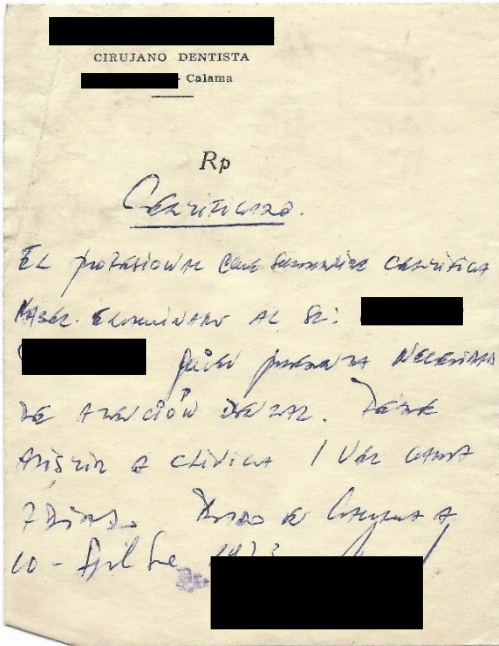 CIRUJANO DENTISTA
- Calama
Rp
Certificado.
El profesional que suscribe certifica
haber examinado al Sr:
quien presenta necesidad
de atención dental. Debe
asistir a clínica 1 vez cada
7 días. Dado en Calama a
10 - April de 1973